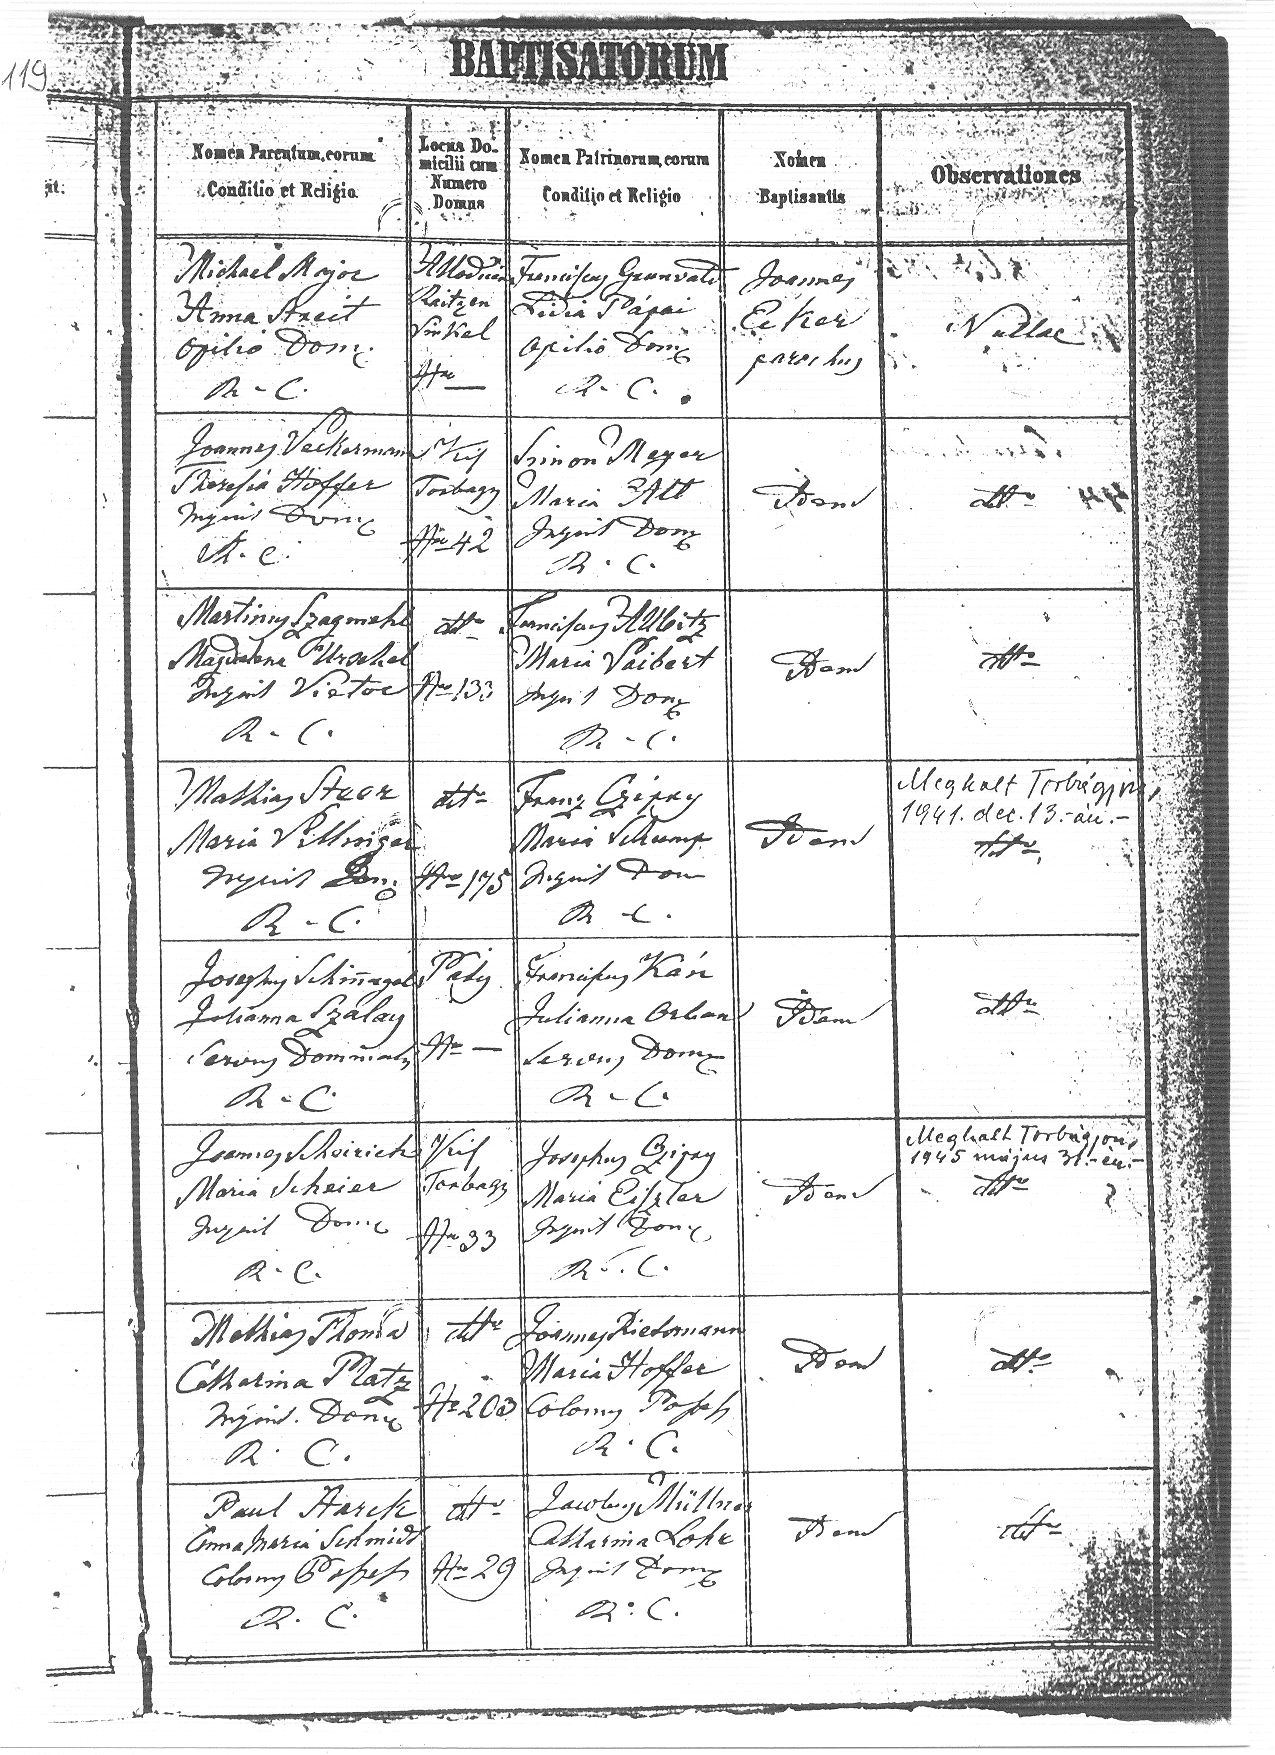 119
BAPTISATORUM
Nomen Parentum, eorum
Conditio et Religio
Locus Do-
micilii cum
Numero
Domus
Nomen Patrinorum, eorum
Conditio et Religio
Nomen
Baptisantis
Observationes
Michael Major
Anna Streit
Opilio Dom.
R - C.
Allodium
Raitzen
Vinkel
Nro —
Franciscus Grunvald
Lidia Pápai
Opilio Dom
R. C.
Joannes
Ecker
parochus
Nullae
Joannes Veckermann
Theresia Hoffer
Inquil Dom
R. C.
Kis
Torbagy
Nro 42
Simon Mayer
Maria Alt
Inquil Dom
R. C.
Idem
dtto
Martinus
Magdalena Urschel
Inquil Victor
R - C.
dtto
Nro 133
Franciscus
Maria Vaibert
Inquil Dom
R - C.
Idem
dtto
Mathias Staer
Maria
Inquil Dom.
R - C.
dtto
Nro 175
Franz Czipry
Maria
Inquil Dom
R - C.
Idem
Meghalt Torbágyon,
1941. dec. 13.-án.-
dtto
Josephus Schinagel
Julianna Szálay
Servus Dominalis
R - C.
Páty
Nro —
Franciscus Kán
Julianna Orban
Servus Dom
R - C.
Idem
dtto
Joannes Scheirich
Maria Scheier
Inquil Dom
R - C.
Kis
Torbagy
Nro 33
Josephus Czipry
Maria Eiszler
Inquil Dom
R - C.
Idem
Meghalt Torbágyon,
1945 május 31.-én.-
dtto
Mathias Thoma
Catharina Platz
Inquil. Dom
R. C.
dtto
Nro 203
Joannes Riedsmann
Maria Hoffer
Colonus Possess
R. C.
Idem
dtto
Paul Harck
Anna Maria Schmidt
Colonus Possess
R. C.
dtto
Nro 29
Jacobus Müllner
Catharina Lohr
Inquil Dom
R. C.
Idem
dtto